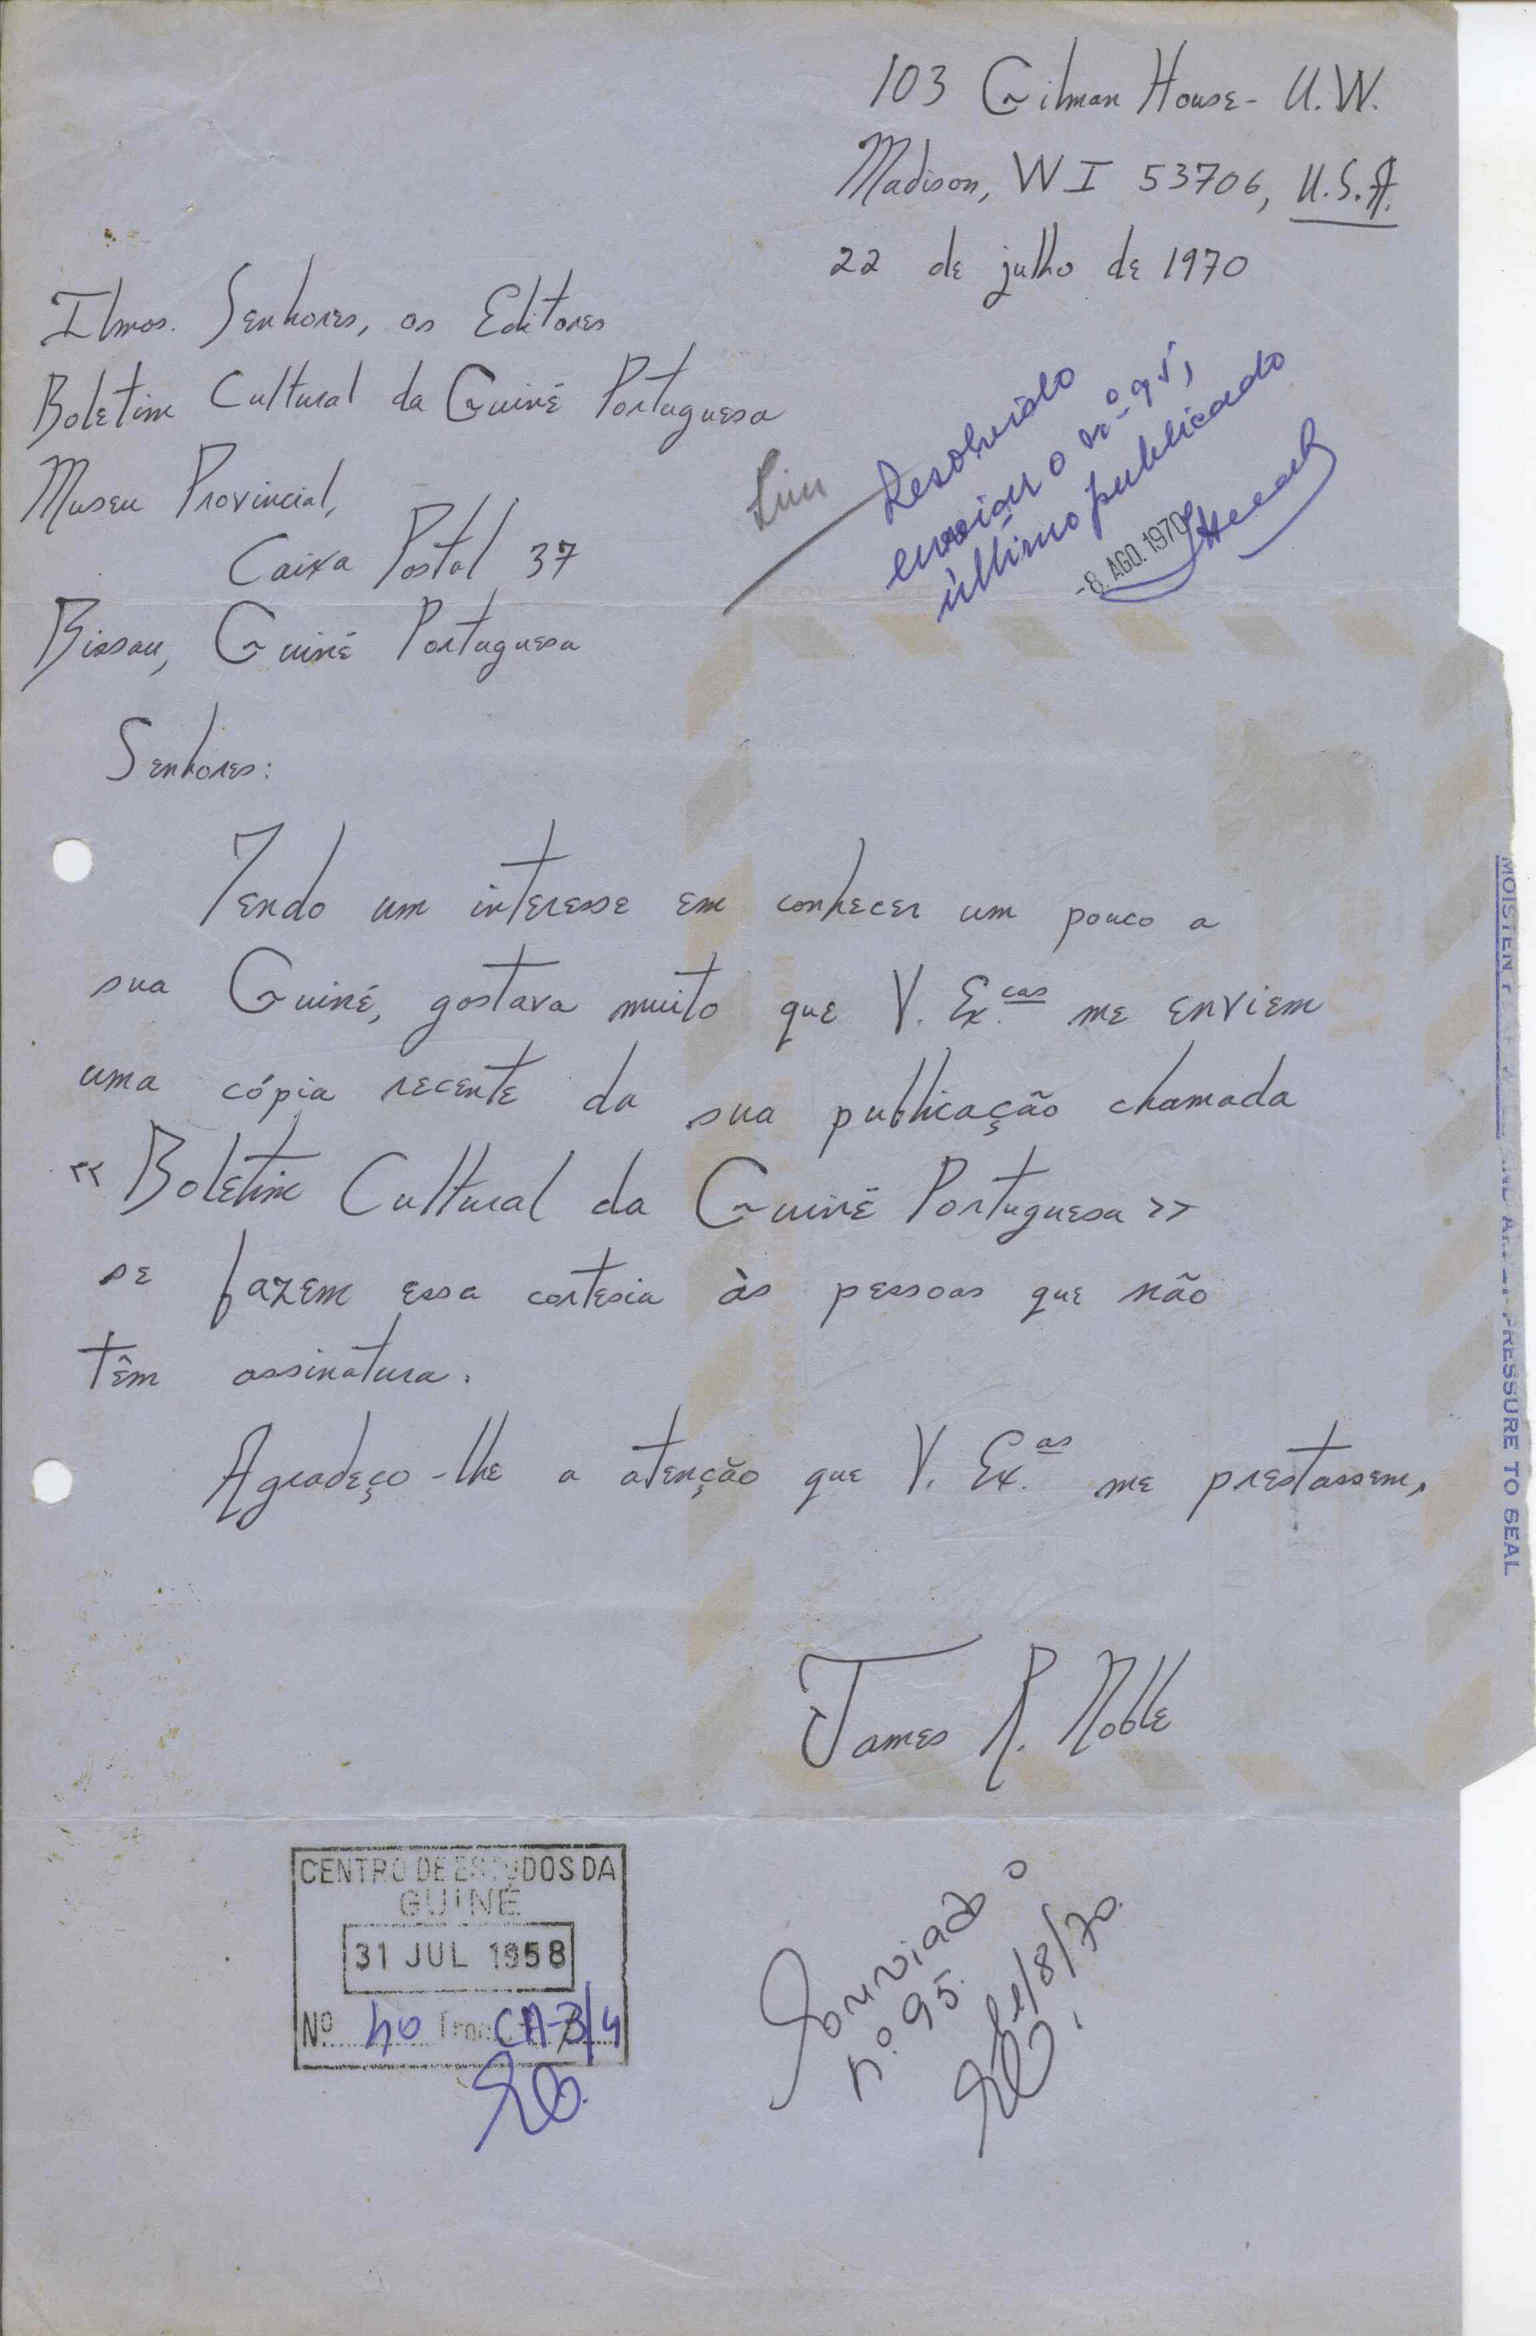 103 Gilman House - U.W.
Madison, WI 53706, U.S.A.
22 de julho de 1970
Ilmos. Senhores, os Editores
Boletim Cultural da Guiné Portuguesa
Museu Provincial,
Caixa Postal 37
Bissau, Guiné Portuguesa
Resolvido
enviar o n.º 95,
último publicado
-8. AGO. 1970
Senhores:
Tendo um interesse em conhecer um pouco a
sua Guiné, gostava muito que V. Ex.cas me enviem
uma cópia recente da sua publicação chamada
«Boletim Cultural da Guiné Portuguesa»
se fazem essa cortesia às pessoas que não
têm assinatura.
Agradeço-lhe a atenção que V. Ex.as me prestassem.
James R. Noble
CENTRO DE ESTUDOS DA
GUINÉ
31 JUL 1958
Nº 40 CA-3/4
enviado o
n.º 95.
/8/70
MOISTEN
PRESSURE TO SEAL